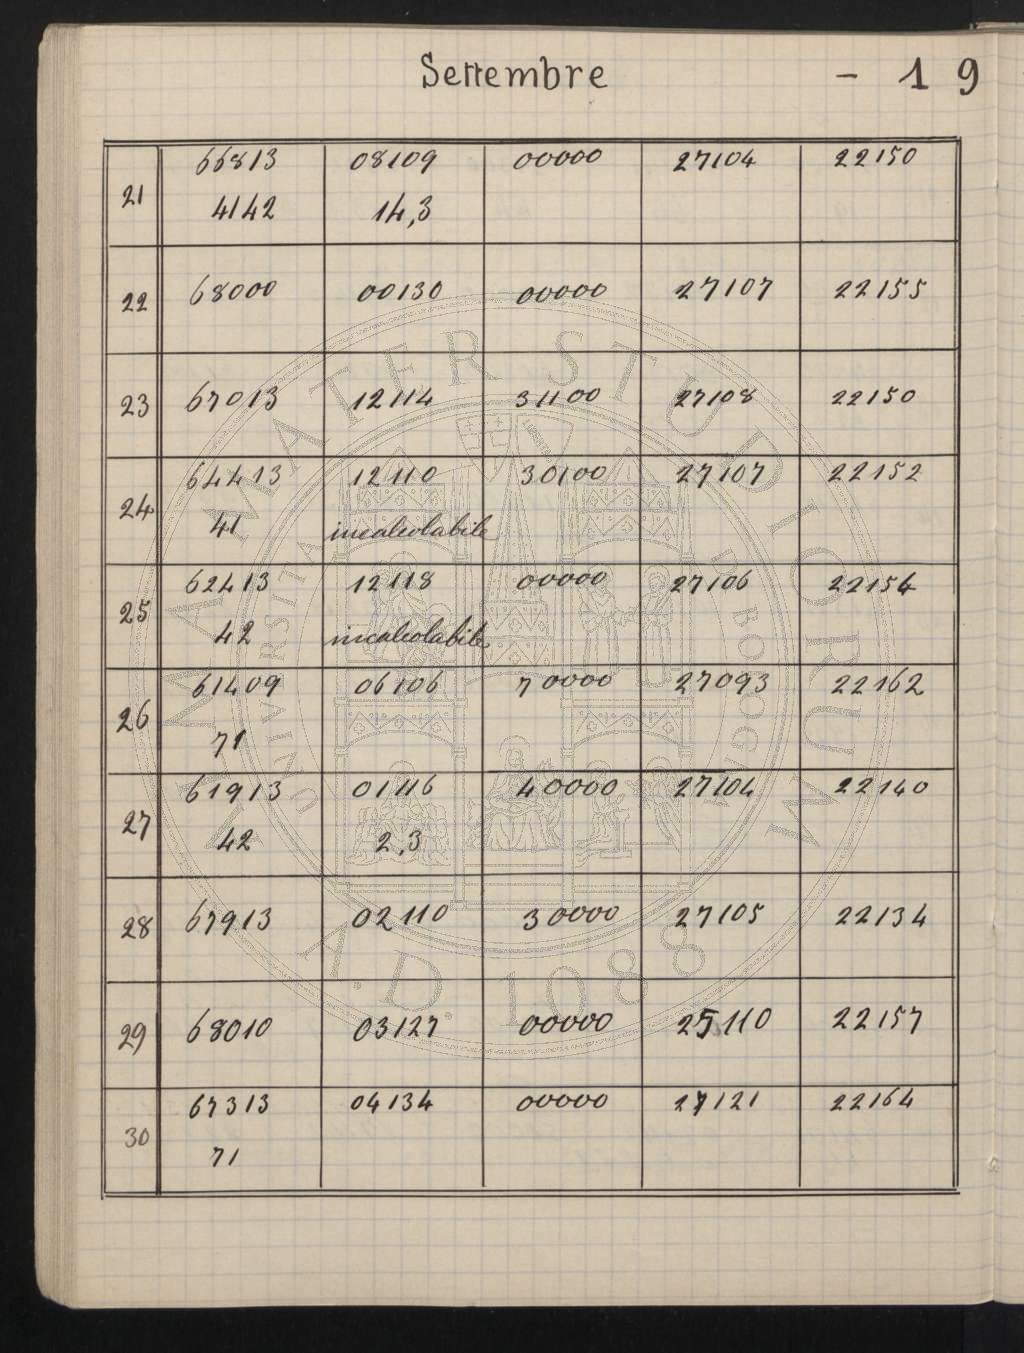 Settembre - 19
21 66813 08109 00000 27104 22150
4142 14,3
22 68000 00130 00000 27107 22155
23 67013 12114 31100 27108 22150
24 64413 12110 30100 27107 22152
41 incalcolabile
25 62413 12118 00000 27106 22154
42 incalcolabile
26 61409 06106 70000 27093 22162
71
27 61913 01116 40000 27104 22140
42 2,3
28 67913 02110 30000 27105 22134
29 68010 03127 00000 25110 22157
30 67313 04134 00000 27121 22164
71
ALMA MATER STUDIORUM
UNIVERSITÀ DI BOLOGNA
A.D. 1088